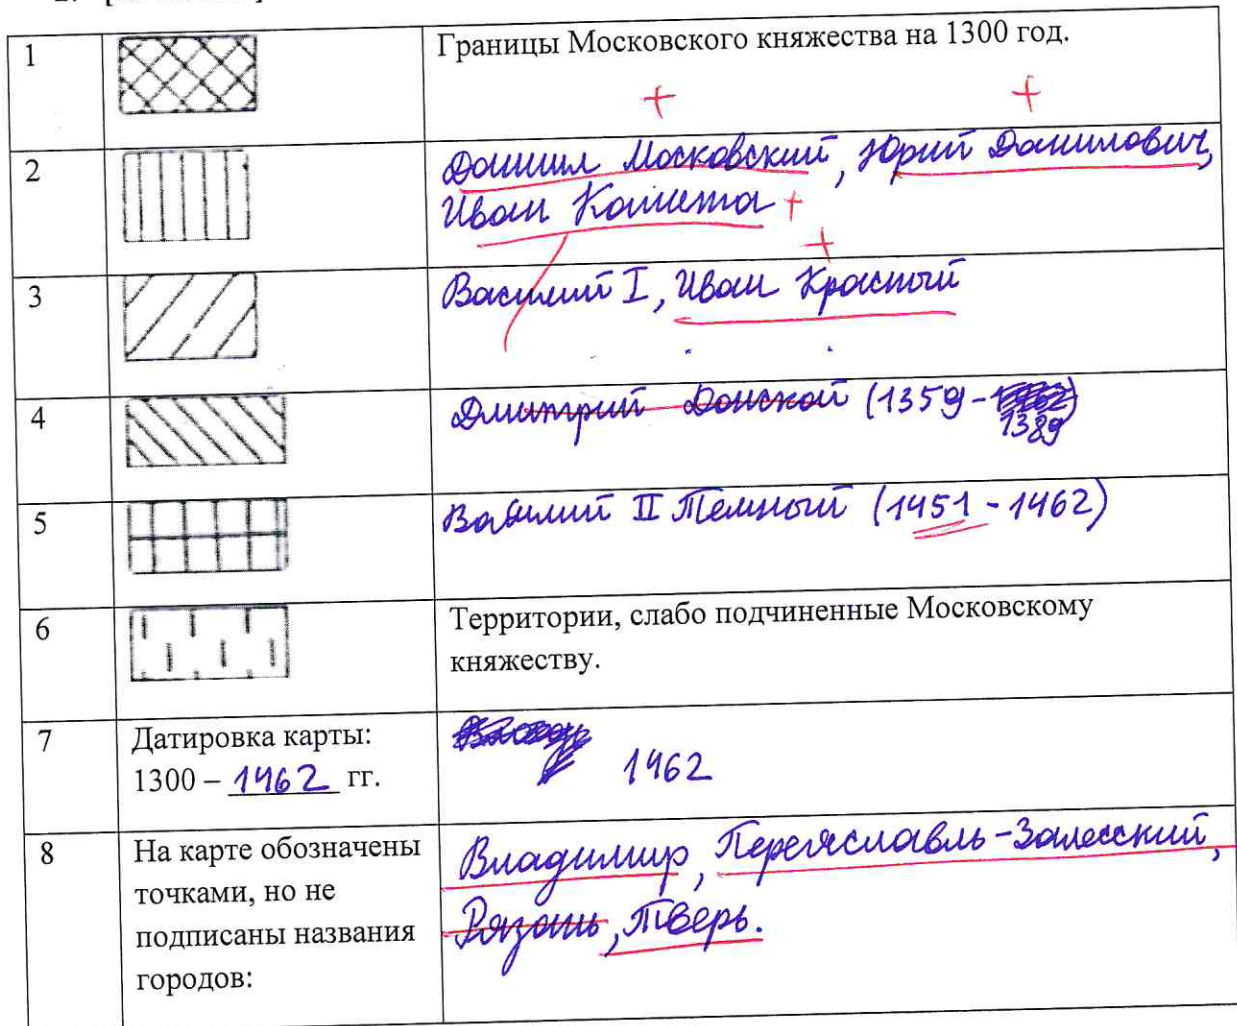 1 Границы Московского княжества на 1300 год.
+ +
2 Даниил Московский, Юрий Данилович,
Иван Калита +
+
3 Василий I, Иван Красный
4 Дмитрий Донской (1359-
1389
5 Василий II Темный (1451-1462)
6 Территории, слабо подчиненные Московскому
княжеству.
7 Датировка карты:
1300 – 1462 гг.
1462
8 На карте обозначены
точками, но не
подписаны названия
городов:
Владимир, Переяславль-Залесский,
Рязань, Тверь.